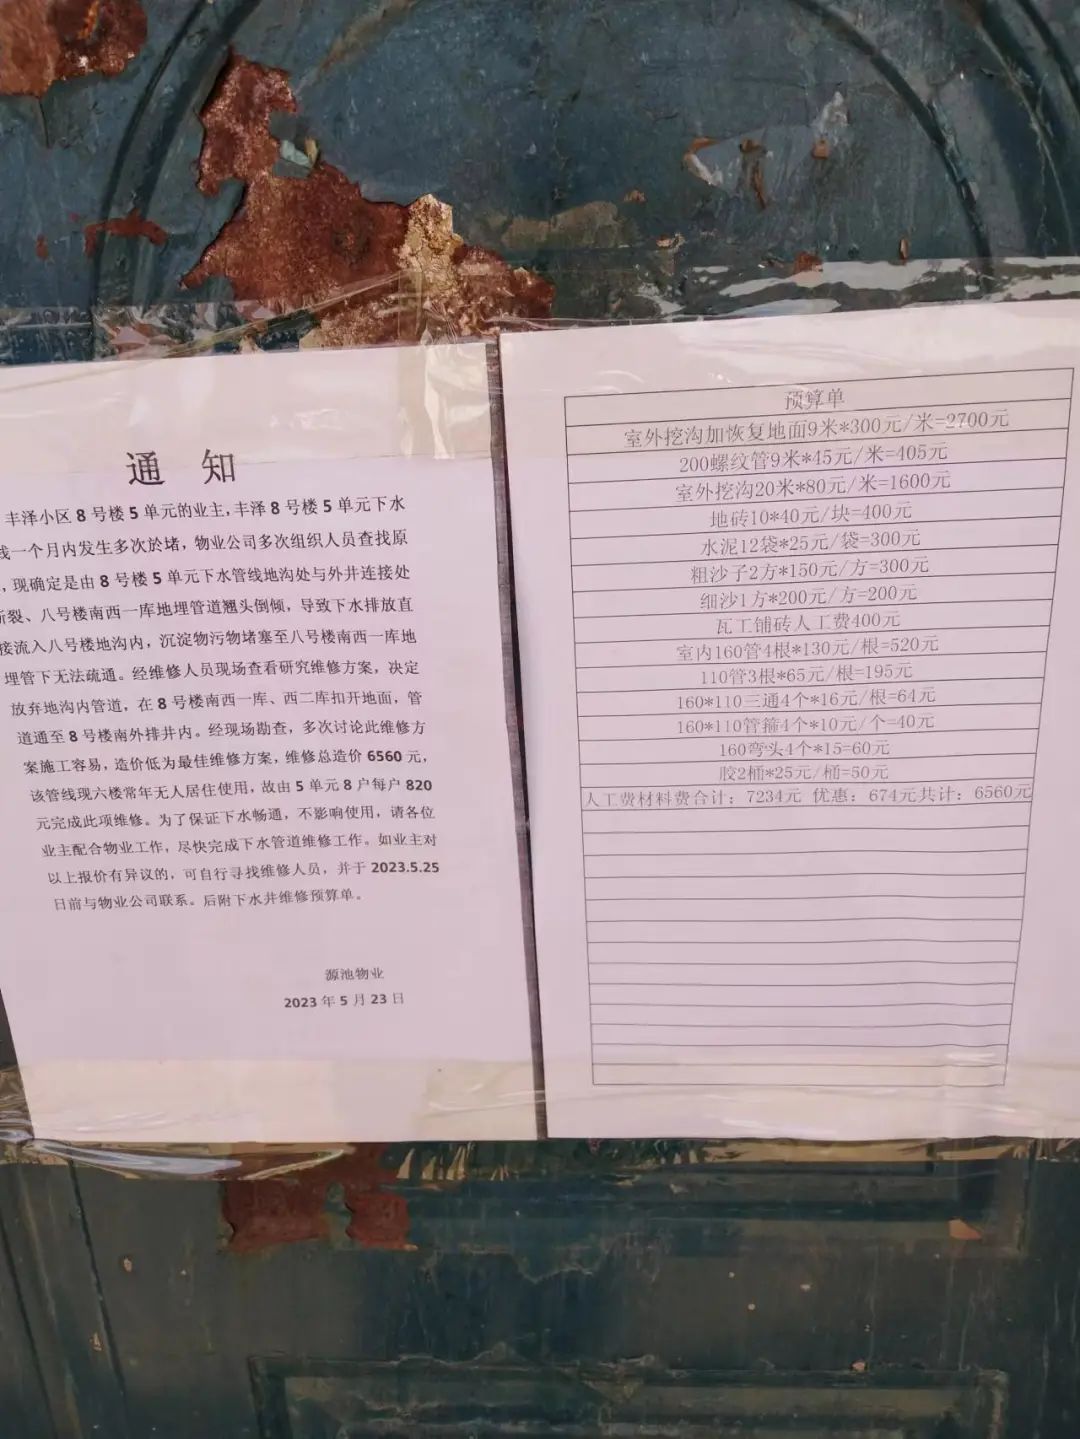 通 知
丰泽小区 8 号楼 5 单元的业主,丰泽 8 号楼 5 单元下水
线一个月内发生多次於堵，物业公司多次组织人员查找原
，现确定是由 8 号楼 5 单元下水管线地沟处与外井连接处
断裂、八号楼南西一库地埋管道翘头倒倾，导致下水排放直
接流入八号楼地沟内，沉淀物污物堵塞至八号楼南西一库地
埋管下无法疏通。经维修人员现场查看研究维修方案，决定
放弃地沟内管道，在 8 号楼南西一库、西二库扣开地面，管
道通至 8 号楼南外排井内。经现场勘查，多次讨论此维修方
案施工容易，造价低为最佳维修方案，维修总造价 6560 元，
该管线现六楼常年无人居住使用，故由 5 单元 8 户每户 820
元完成此项维修。为了保证下水畅通，不影响使用，请各位
业主配合物业工作，尽快完成下水管道维修工作。如业主对
以上报价有异议的，可自行寻找维修人员，并于 2023.5.25
日前与物业公司联系。后附下水井维修预算单。
源池物业
2023 年 5 月 23 日
预算单
室外挖沟加恢复地面9米*300元/米=2700元
200螺纹管9米*45元/米=405元
室外挖沟20米*80元/米=1600元
地砖10*40元/块=400元
水泥12袋*25元/袋=300元
粗沙子2方*150元/方=300元
细沙1方*200元/方=200元
瓦工铺砖人工费400元
室内160管4根*130元/根=520元
110管3根*65元/根=195元
160*110三通4个*16元/根=64元
160*110管箍4个*10元/个=40元
160弯头4个*15=60元
胶2桶*25元/桶=50元
人工费材料费合计：7234元 优惠：674元共计：6560元